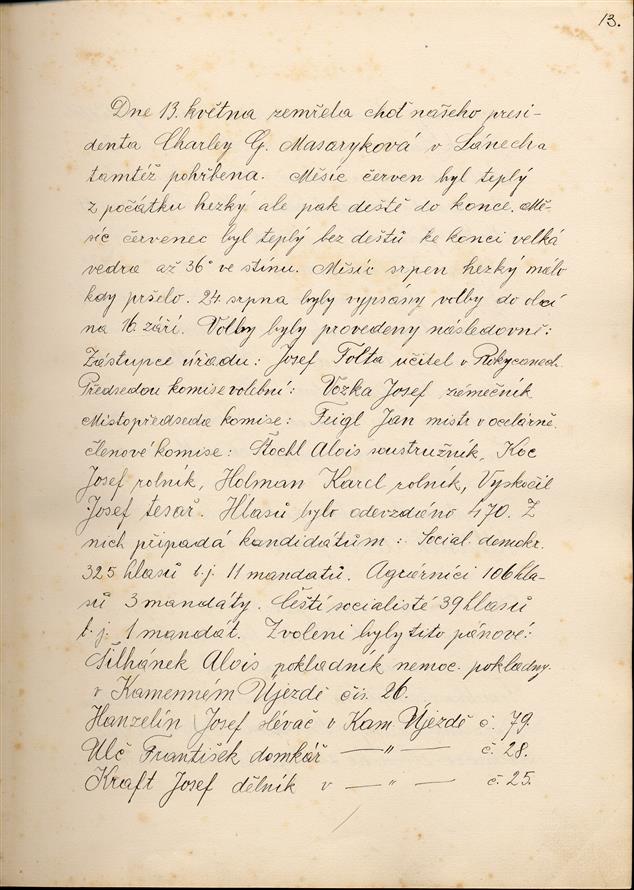 13.
Dne 13. května zemřela choť našeho presi-
denta Charley G. Masaryková v Lánech a
tamtéž pohřbena. Měsíc červen byl teplý
z počátku hezký ale pak deště do konce. Mě-
síc červenec byl teplý bez dešťů ke konci velká
vedra až 36° ve stínu. Měsíc srpen hezký málo
kdy pršelo. 24. srpna byly vypsány volby do obcí
na 16. září. Volby byly provedeny následovně:
Zástupce úřadu: Josef Folta učitel v Rokycanech.
Předsedou komise volební: Vozka Josef zámečník
Místopředseda komise: Feigl Jan mistr v ocelárně.
členové komise: Štochl Alois soustružník, Koc
Josef rolník, Holman Karel rolník, Vyskočil
Josef tesař. Hlasů bylo odevzdáno 470. Z
nich připadá kandidátům: Social. demokr.
325 hlasů t.j. 11 mandatů. Agrárníci 106 hla-
sů 3 mandáty. Čeští socialisté 39 hlasů
t.j. 1 mandát. Zvoleni byly tito pánové:
Šilhánek Alois pokladník nemoc. pokladny.
v Kamenném Újezdě čís. 26.
Hanzelín Josef slévač v Kam. Újezdě č. 79.
Ulč František domkář — „ — č. 28.
Kraft Josef dělník v — „ — č. 25.